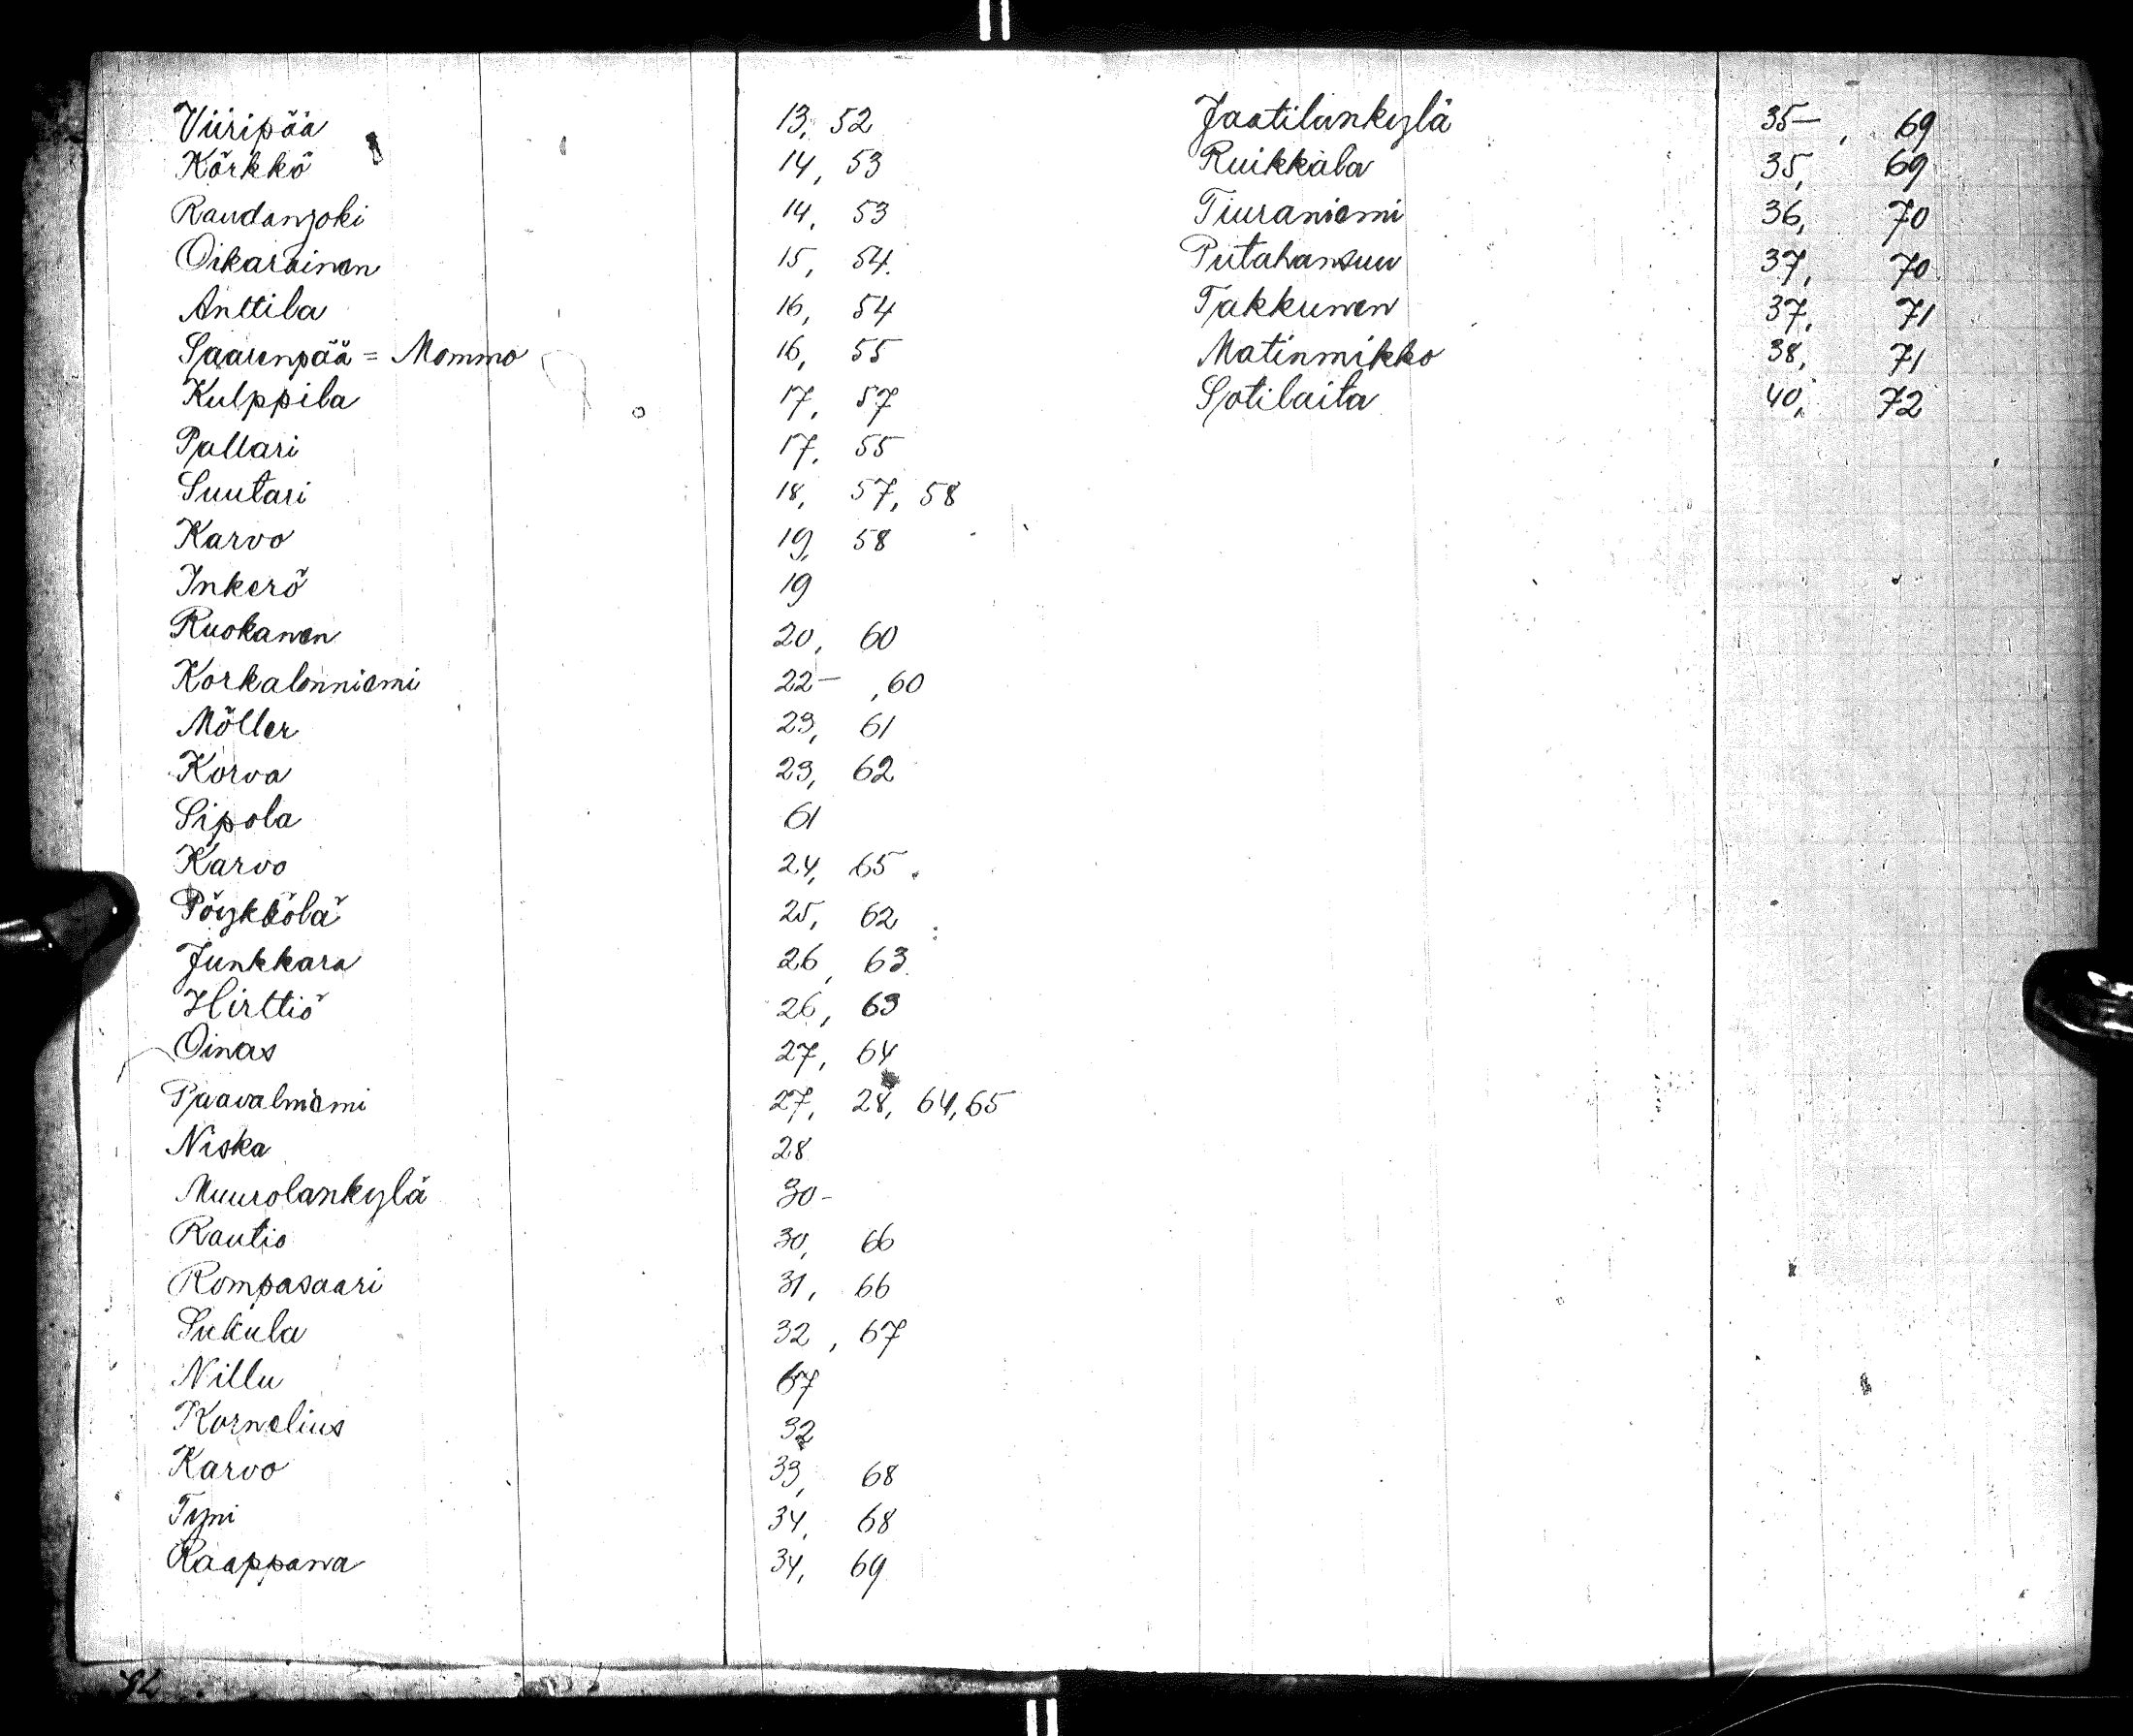 Viiripää 13, 52
Körkkö 14, 53
Raudanjoki 14, 53
Oikarainen 15, 54
Anttila 16, 54
Saarenpää = Mommo 16, 55
Kulppila 17, 57
Pallari 17, 55
Suutari 18, 57, 58
Karvo 19, 58
Inkerö 19
Ruokanen 20, 60
Korkalonniemi 22- , 60
Möller 23, 61
Korva 23, 62
Sipola 61
Karvo 24, 65
Pöykkölä 25, 62
Junkkara 26, 63
Hirttiö 26, 63
Oinas 27, 64
Paavalniemi 27, 28, 64, 65
Niska 28
Muurolankylä 30-
Rautio 30, 66
Rompasaari 31, 66
Sukula 32, 67
Nillu 67
Kornelius 32
Karvo 33, 68
Tyni 34, 68
Raappana 34, 69
Jaatilankylä 35- , 69
Ruikkala 35, 69
Tiuraniemi 36, 70
Putahansuu 37, 70
Takkunen 37, 71
Matinmikko 38, 71
Sotilaita 40, 72